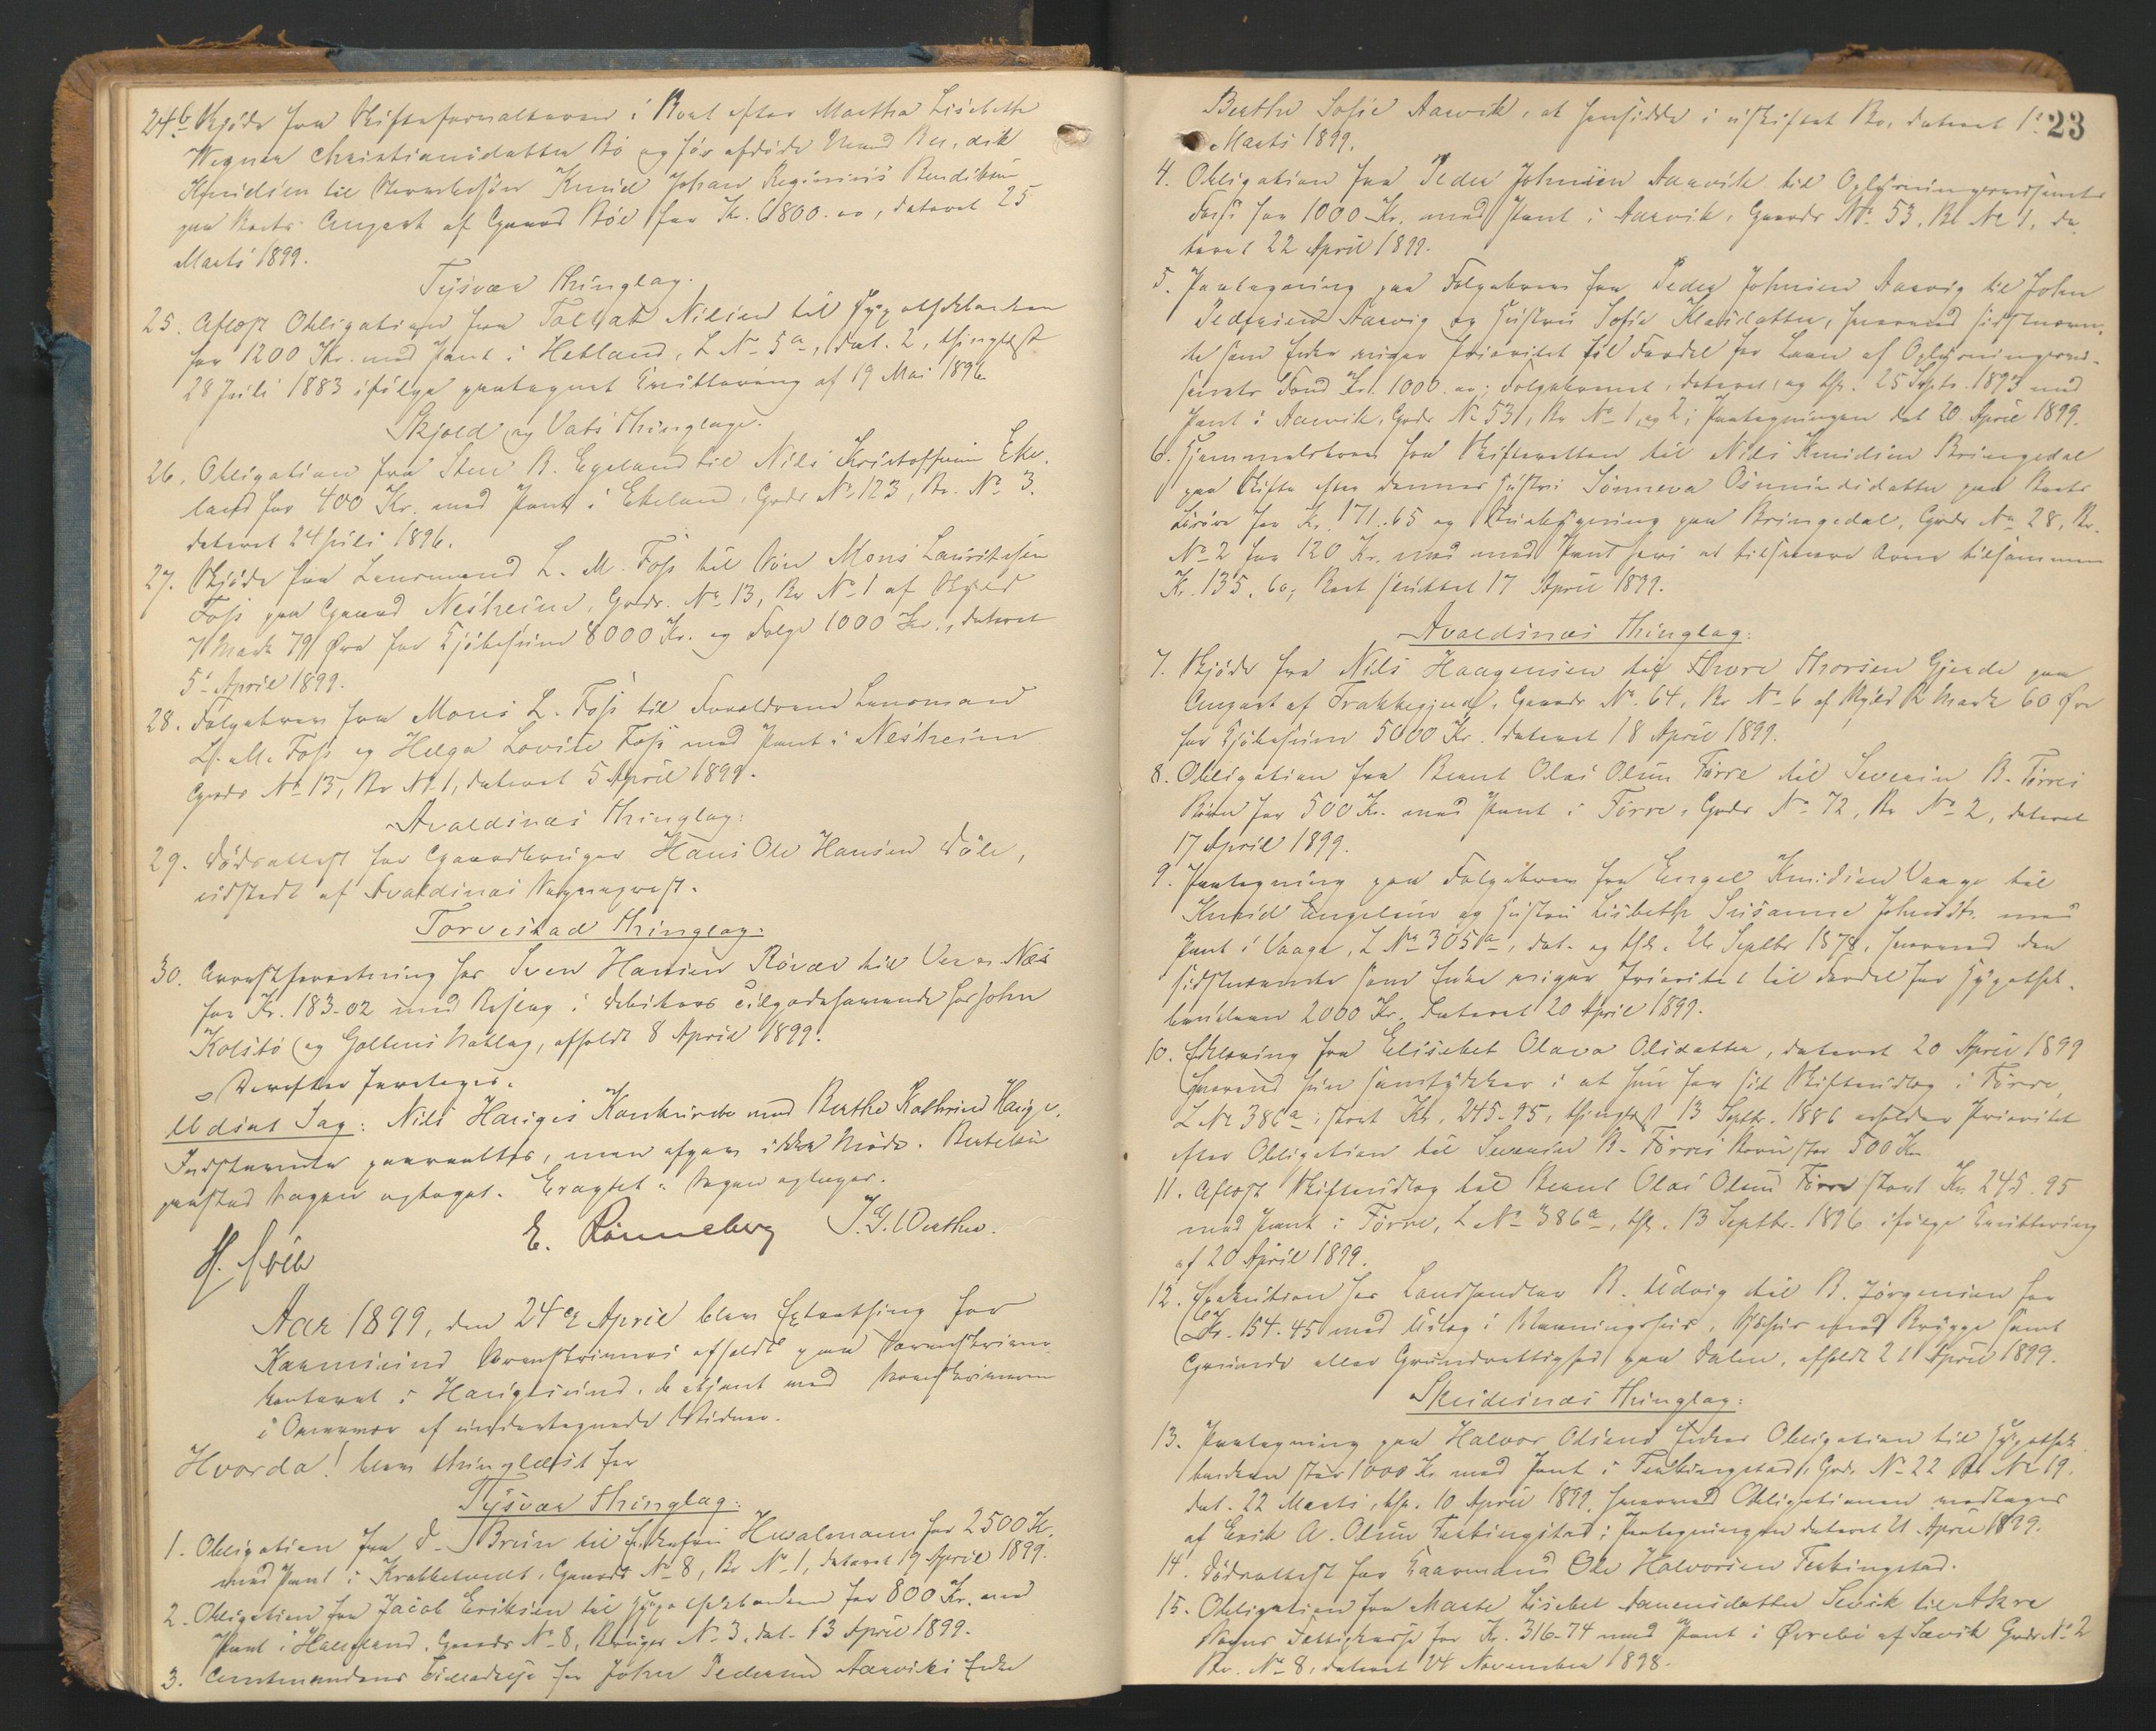 24b Skjøde fra Skifteforvalteren i Boet efter Martha Lisebeth
Wegner Christiansdatter Bø og før afdøde Mand Ben, dik
Knudsen til Stervbosøn Knud Johan Reginius Bendiksen
paa Boets Anpart af Gaard Bøe for Kr. 6800.00, dateret 25
Marts 1899.
Tysvær Thinglag.
25. Aflæst Obligation fra Tollak Nilsen til Hypothekbanken
for 1200 Kr. med Pant i Hetland, L No 5a, dat. 2, thinglæst
28 Juli 1883 ifølge paategnet Kvittering af 19 Mai 1896.
Skjold og Vats Thinglage.
26. Obligation fra Sten B. Egeland til Nils Kristoffersen Eke-
land for 400 Kr. med Pant i Ekeland, Grds No 123, Br. No 3.
dateret 24 Juli 1896.
27. Skjøde fra Lensmand L. M. Foss til Søn Mons Lauritssøn
Foss paa Gaard Nesheim, Grds. No 13, Br No 1 af Skyld
7 Mark 79 Øre for Kjøbesum 8000 Kr. og Folge 1000 Kr., dateret
5' April 1899.
28. Folgebrev fra Mons L. Foss til Forældrene Lensmand
L. M. Foss og Helga Lovise Foss med Pant i Nesheim
Grds No 13, Br No 1, dateret 5 April 1899.
Avaldsnæs Thinglag:
29. Dødsattest for Gaardbruger Hans Ole Hansen Døle,
udstedt af Avaldsnæs Sogneprest.
Torvestad Thinglag:
30. Arrestforretning hos Sven Hansen Røvær til Næs
for Kr. 183.02 med Beslag i Debitors Tilgodehavende hos John
Kolstø og Gollens Notlag, afholdt 8 April 1899.
Derefter foretoges.
Udsat Sag: Nils Hauges Konkursbo mod Berthe Kathrine Hauge.
Indstævnte paaraabtes, men afgav ikke Møde.
paastod Sagen optaget. Eragtet: Sagen optages.
E. Rønneberg J. G. Werther.
Aar 1899, den 24de April blev Extrathing for
Karmsund Sorenskriveri afholdt paa Sorenskriver-
kontoret i Haugesund, betjent med Sorenskriveren
i Overvær af undertegnede Vidner.
Hvorda! blev thinglæst for
Tysvær Thinglag:
1. Obligation fra D. Bruun til Hualmann for 2500 Kr.
med Pant i Krabbetveit, Gaards No 8, Br No 1, dateret 19 April 1899.
2. Obligation fra Jacob Eriksen til Hypothekbanken for 800 Kr. med
Pant i Haugland, Gaards No 8, Bruges No 3, dat. 13 April 1899.
3. Amtmandens Tilladelse for John Pedersen Aarviks Enke
23
Berthe Sofie Aarvik, at hensidde i uskiftet Bo, dateret 1'
Marts 1899.
4. Obligation fra Peder Johnsen Aarvik til Oplysningsvæsenets
for 1000 Kr. med Pant i Aarvik, Gaards No 53, Br No 1, da-
teret 22 April 1899.
5. Paategning paa Folgebrev fra Peder Johnsen Aarvig til John
Pedersen Aarvig og Hustru Sofie Klausdatter, hvorved sidstnævn-
te som Enke viger Prioritet til Fordel for Laan af Oplysningsvæ-
senets Fond Kr. 1000.00; Folgebrevet, dateret, og thl. 25 Septr. 1893 med
Pant i Aarvik, Grds No 53, Br No 1 og 2; Paategningen dat 20 April 1899.
6. Hjemmelsbrev fra Skifteretten til Nils Knudsen Bringedal
paa Skifte efter dennes Hustru Sønneva Osmundsdatter paa Boets
Løsøre for Kr. 171.65 og paa Bringedal, Grds No 28, Br.
No 2 for 120 Kr. mod med Pant heri at tilsvare Arv tilsammen
Kr. 135.60; Boet sluttet 17 April 1899.
Avaldsnæs Thinglag:
7. Skjøde fra Nils Haagensen til Thore Thorsen Gjerde paa
Anpart af Frakkagjerd, Gaards No. 64, Br No 6 af Skyld 2 Mark 60 Øre
for Kjøbesum 5000 Kr. dateret 18 April 1899.
8. Obligation fra Bernt Olai Olsen Førre til Severin B. Førres
Børn for 500 Kr. med Pant i Førre, Grds No 72, Br No 2, dateret
17 April 1899.
9. Paategning paa Folgebrev fra Engel Knudsen Vaage til
Knud Engelsen og Hustru Lisbeth Susanne Johnsdtr. med
Pant i Vaage, L No 305a, dat. og thl. 26 Septbr 1878, hvorved den
sidstnævnte som Enke viger Prioritet til Fordel for Hypothek-
banklaan 2000 Kr. dateret 20 April 1899.
10. Erklæring fra Elisebet Olava Olsdatter, dateret 20 April 1899
hvorved hun samtykker i at hun for sit Skifteudlæg i Førre,
L No 386a, stort Kr. 245.95, thinglæst 13 Septbr. 1886 erholder Prioritet
efter Obligation til Severin B. Førres Børn stor 500 Kr.
11. Aflæst Skifteudlæg til Bernt Olai Olsen Førre stort Kr 245.95
med Pant i Førre, L No 386a, thl. 13 Septbr. 1896 ifølge Kvittering
af 20 April 1899.
12. Exekution hos Landhandler B. Udvig til B. Jørgensen for
Kr. 154.45 med Udlæg i Vaaningshus, Søhus med Brygge samt
Grunde eller Grundrettighed paa Dalen, afholdt 21 April 1899.
Skudesnæs Thinglag:
13. Paategning paa Halvor Olsens Enkes Obligation til Hypothek-
banken stor 1000 Kr. med Pant i Ferkingstad, Grds. No 22 Br No 19.
dat. 22 Marts, thl. 10 April 1899, hvorved Obligationen vedtages
af Erik A. Olsen Ferkingstad; Paategningen dateret 21 April 1899.
14. Dødsattest for Kaarmand Ole Halvorsen Ferkingstad.
15. Obligation fra Marte Lisebet Aanensdatter Sevik til Akre
Sogns Fattigkasse for Kr. 316.74 med Pant i Øvrebø af Sævik Grds No 2
Br. No 8, dateret 24 November 1898.